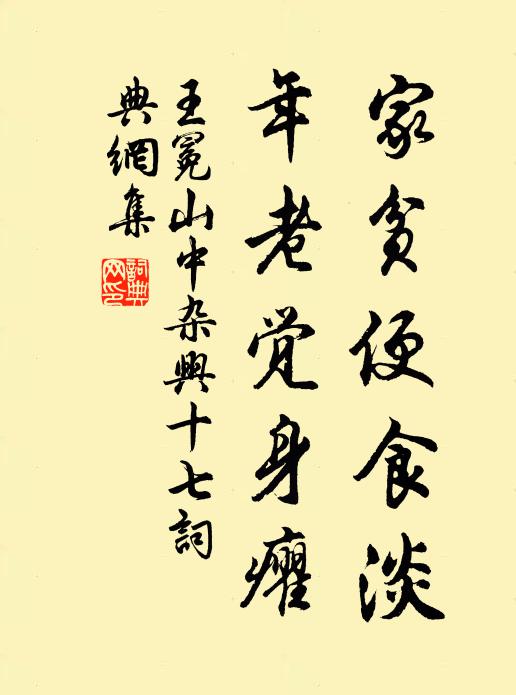 家贫便食淡
年老觉身癯
王冕山中杂興十七詞
典網集
詞典网印